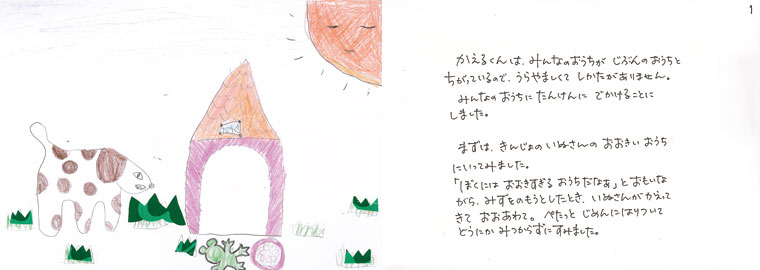 1
かえるくんは、みんなのおうちが じぶんのおうちと
ちがっているので、うらやましくて しかたがありません。
みんなのおうちに たんけんに でかけることに
しました。
まずは、きんじょの いぬさんの おおきい おうち
にいってみました。
「ぼくには おおきすぎる おうちだなぁ」と おもいな
がら、みずをのもうとしたとき、いぬさんが かえって
きて おおあわて。 ぺたっと じめんに はりついて
どうにか みつからずに すみました。